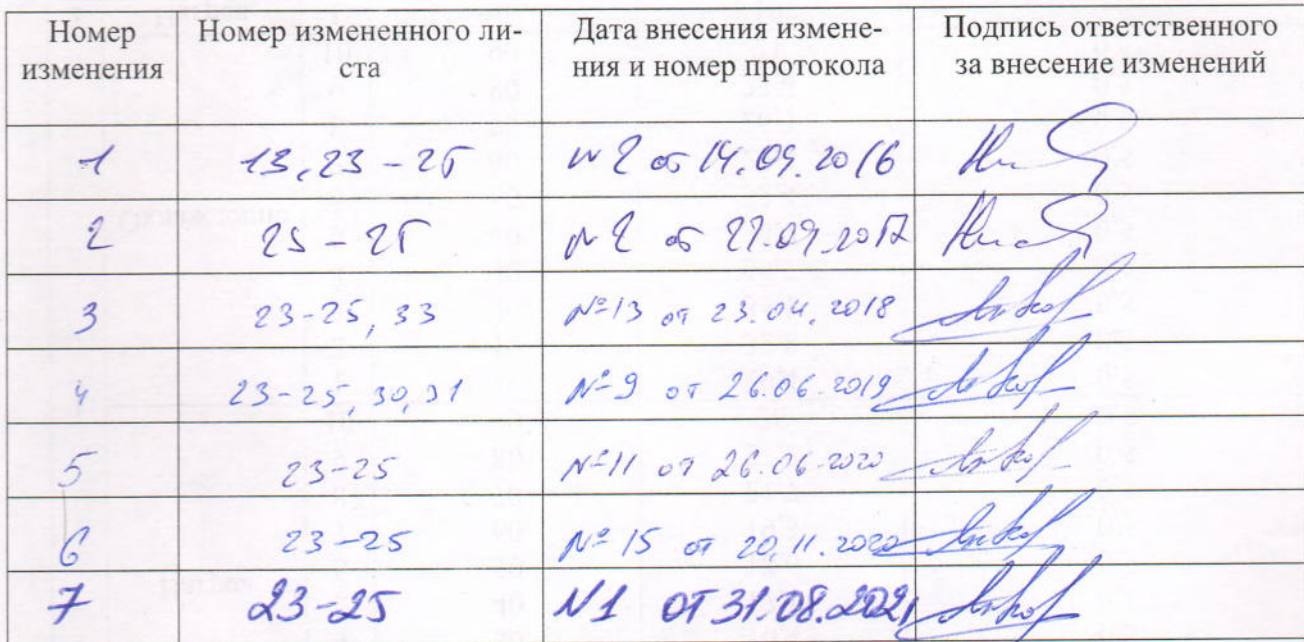 Номер изменения | Номер измененного ли-ста | Дата внесения измене-ния и номер протокола | Подпись ответственного за внесение изменений
1 | 13, 23 – 25 | № 2 от 14.09.2016
2 | 23 – 25 | № 2 от 27.09.2017
3 | 23-25, 33 | № 13 от 23.04.2018
4 | 23-25, 30, 31 | № 9 от 26.06.2019
5 | 23-25 | № 11 от 26.06.2020
6 | 23-25 | № 15 от 20.11.2020
7 | 23-25 | N1 от 31.08.2021